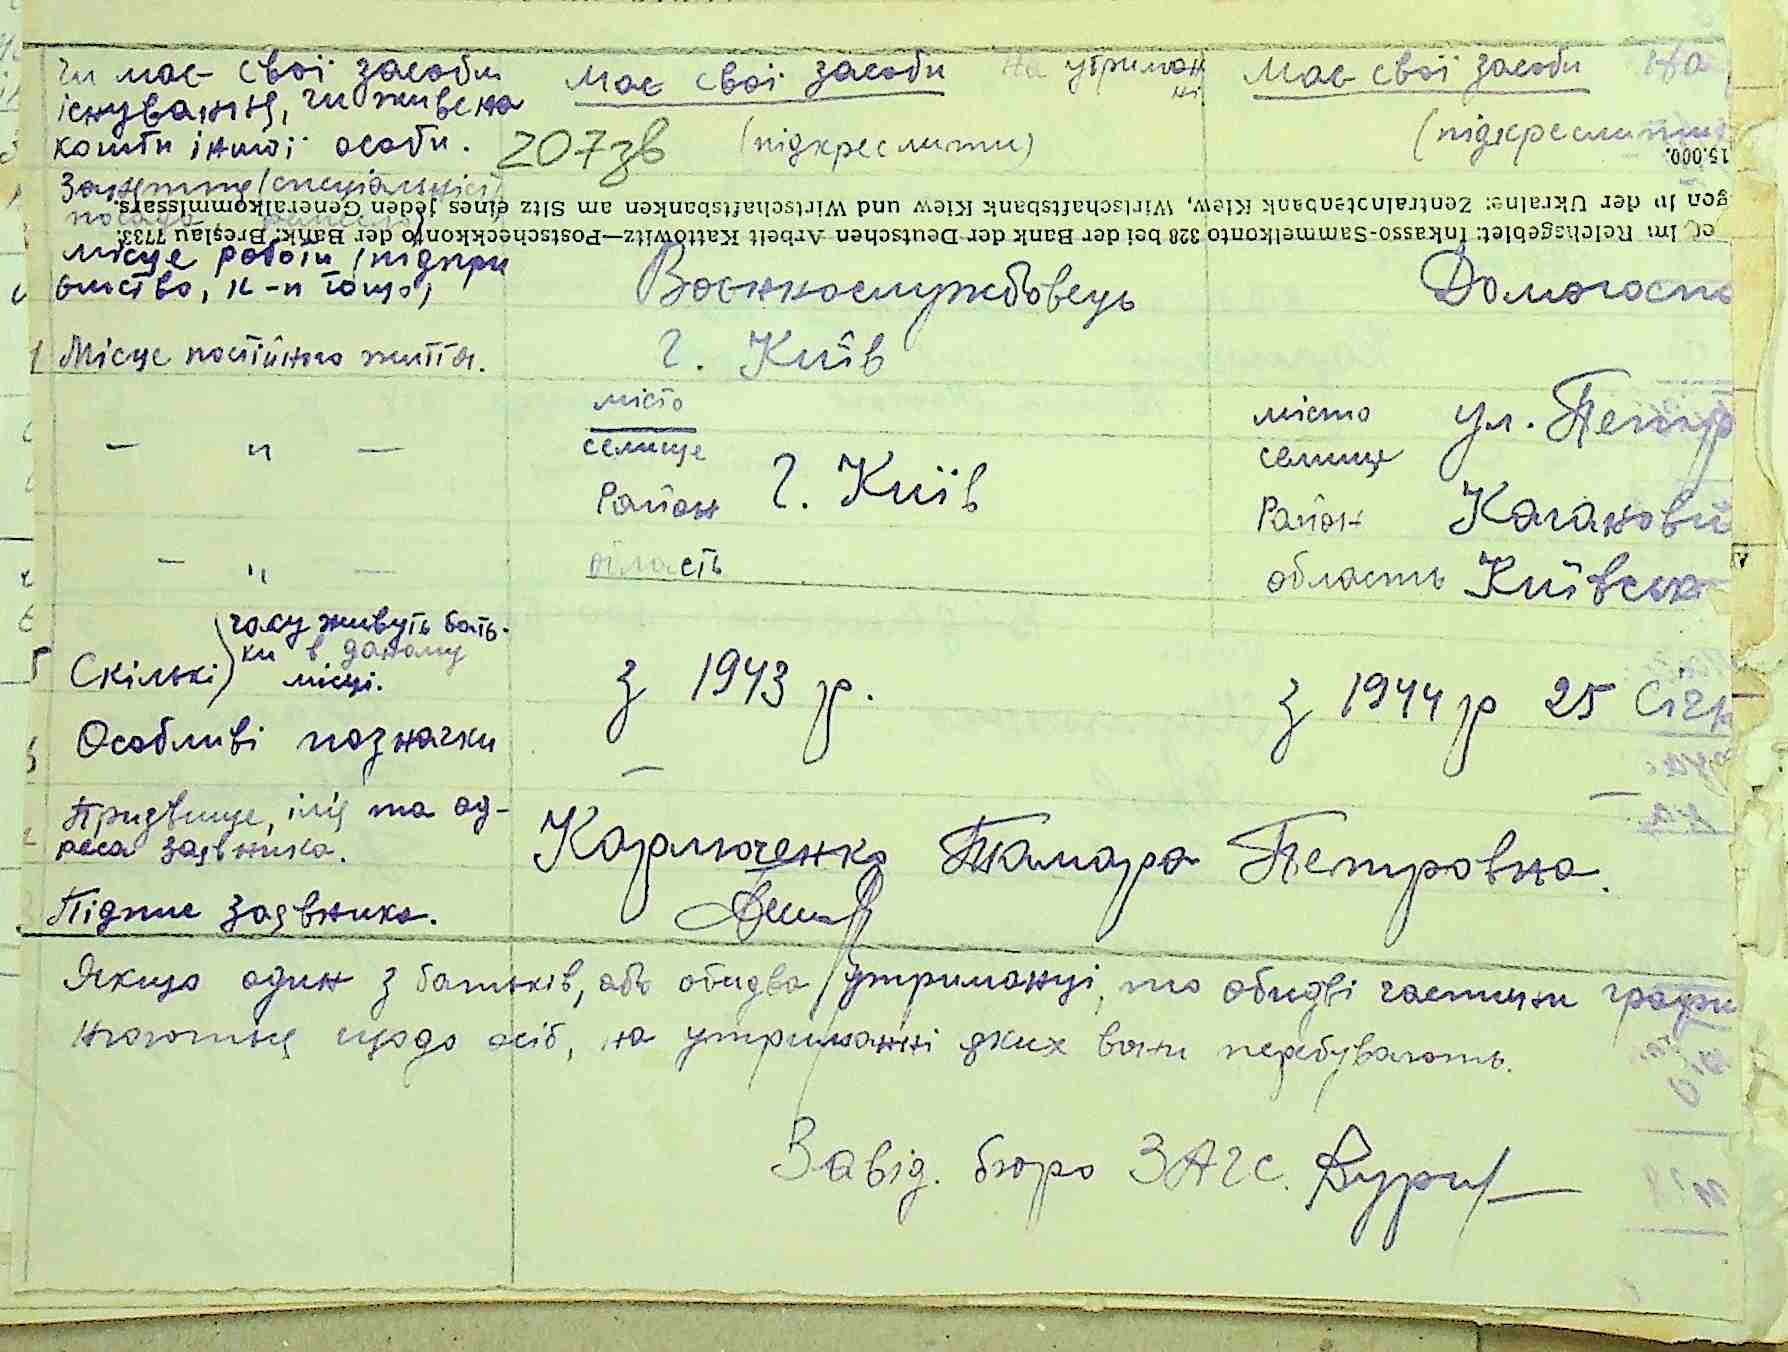 Чи має свої засоби має свої засоби на утриман має свої засоби На
існування, чи живе на ні
кошти іншої особи. 207зв (підкреслити) (підкреслити
15.000.
Заняття/спеціальність
gen in der Ukraine: Zentralnotenbank Kiew, Wirtschaftsbank Kiew und Wirtschaftsbanken am Sitz eines jeden Generalkommissars.
посада
Im Reichsgebiet: Inkasso-Sammelkonto 328 bei der Bank der Deutschen Arbeit Kattowitz—Postscheckkonto der Bank: Breslau 7733.
місце роботи /підпри
ємство, к-п тощо/ Военнослужбовець Домогоспо
Місце постійного життя. г. Київ
місто місто ул. Петр
— " — селище селище
Район г. Київ Район Каганови
— " — область область Київськ
часу живуть бать-
ки в даному
Скільки місці. з 1943 р. з 1944 р 25 Січн
Особливі позначки — —
Призвище, імя та ад-
реса заявника. Карлюченко Тамара Петровна.
Підпис заявника.
Якщо один з батьків, або обидва утриманці, то обидві частини графи
щодо осіб, на утриманні яких вони перебувають.
Завід. бюро ЗАГС.